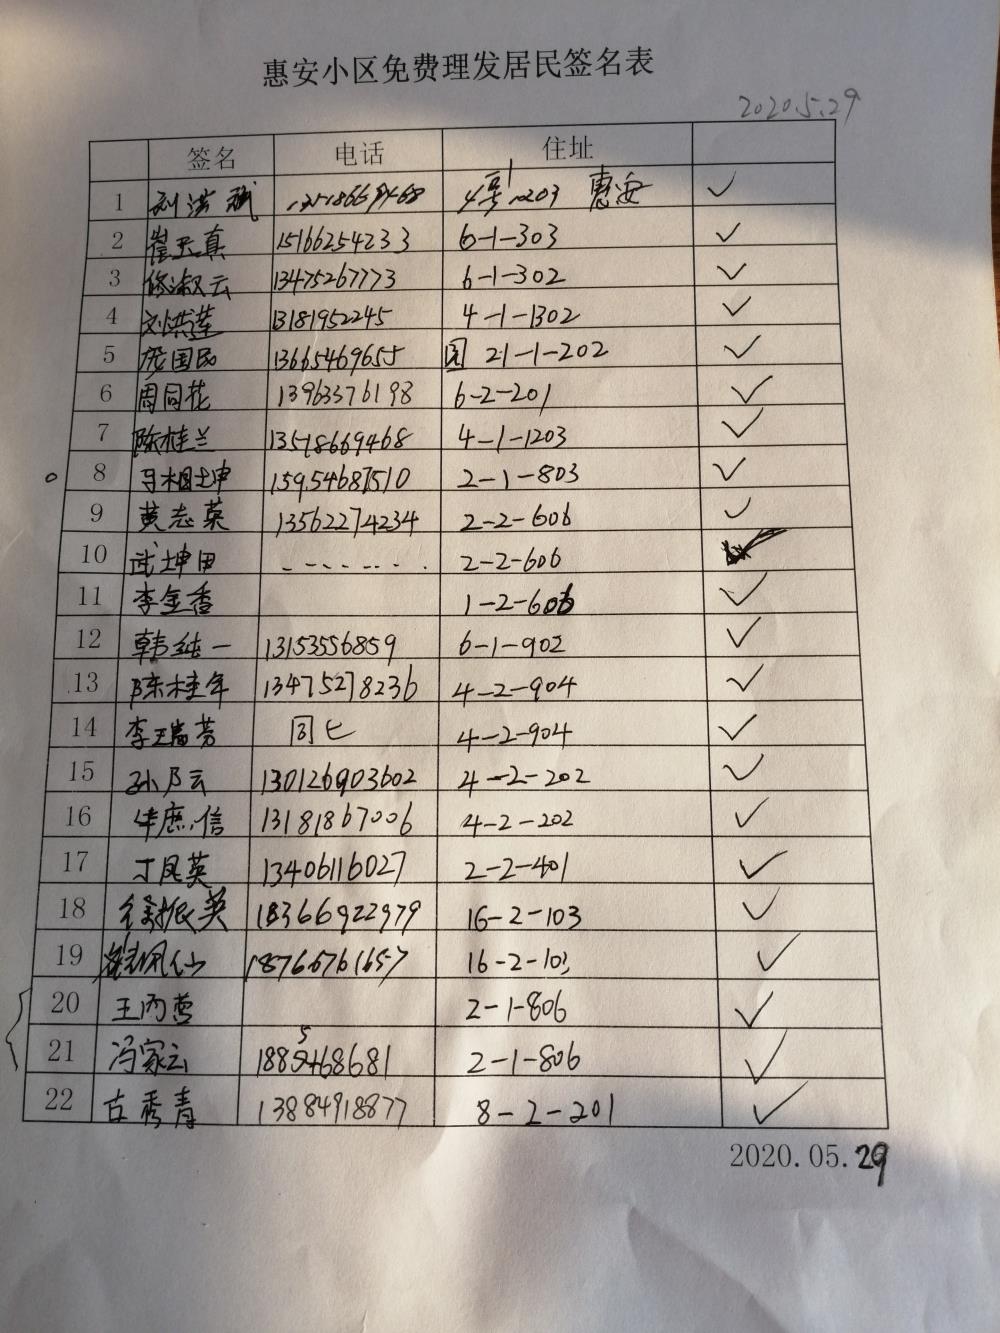 惠安小区免费理发居民签名表
2020.5.29
签名 电话 住址
1 刘洪斌 13518669468 惠安 ✓
2 崔天真 15166254233 6-1-303 ✓
3 修淑云 13475267773 6-1-302 ✓
4 刘洪莲 13181952245 4-1-1302 ✓
5 国民 13665469655 园 21-1-202 ✓
6 周同花 13963376198 6-2-201 ✓
7 陈桂兰 13518669468 4-1-1203 ✓
8 马相坤 15954687510 2-1-803 ✓
9 黄志英 13562274234 2-2-606 ✓
10 武坤田 ........ 2-2-606 ✓
11 李金香 1-2-606 ✓
12 韩纯一 13153556859 6-1-902 ✓
13 陈桂年 13475278236 4-2-904 ✓
14 李瑞芳 同上 4-2-904 ✓
15 孙月云 130126903602 4-2-202 ✓
16 信 13181867006 4-2-202 ✓
17 丁凤英 13406116027 2-2-401 ✓
18 徐振英 18366922979 16-2-103 ✓
19 仙 18766761657 16-2-103 ✓
20 王丙 2-1-806 ✓
21 冯家云 18855468681 2-1-806 ✓
22 古秀青 13884918877 8-2-201 ✓
2020.05.29